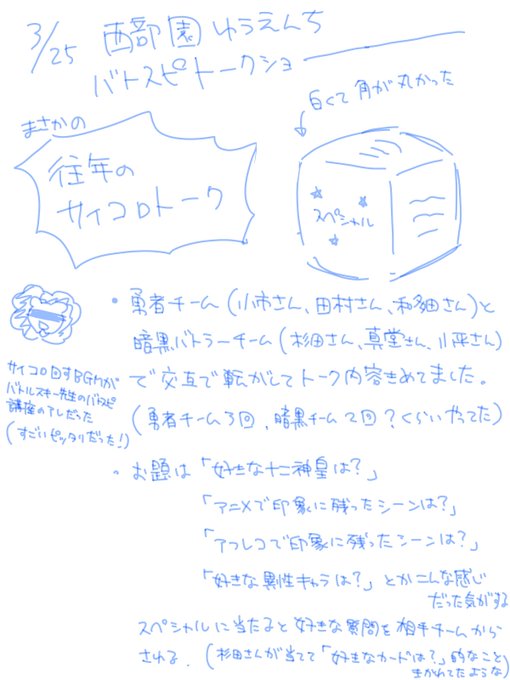 3/25 西部園ゆうえんち
バトスピトークショー
白くて角が丸かった
まさかの
往年の
サイコロトーク
スペシャル
・勇者チーム(小市さん、田村さん、和多田さん)と
暗黒バトラーチーム(杉田さん、真堂さん、小平さん)
で交互で転がしてトーク内容きめてました。
(勇者チーム3回、暗黒チーム2回?くらいやってた)
サイコロ回すBGMが
バトルスキー先生のバトスピ
講座のアレだった
(すごいピッタリだった!)
・お題は「好きな十二神皇は?」
「アニメで印象に残ったシーンは?」
「アフレコで印象に残ったシーンは?」
「好きな異性キャラは?」とかこんな感じ
だった気がする
スペシャルに当たると好きな質問を相手チームから
される。(杉田さんが当てて「好きなカードは?」的なこと
きかれてたような)